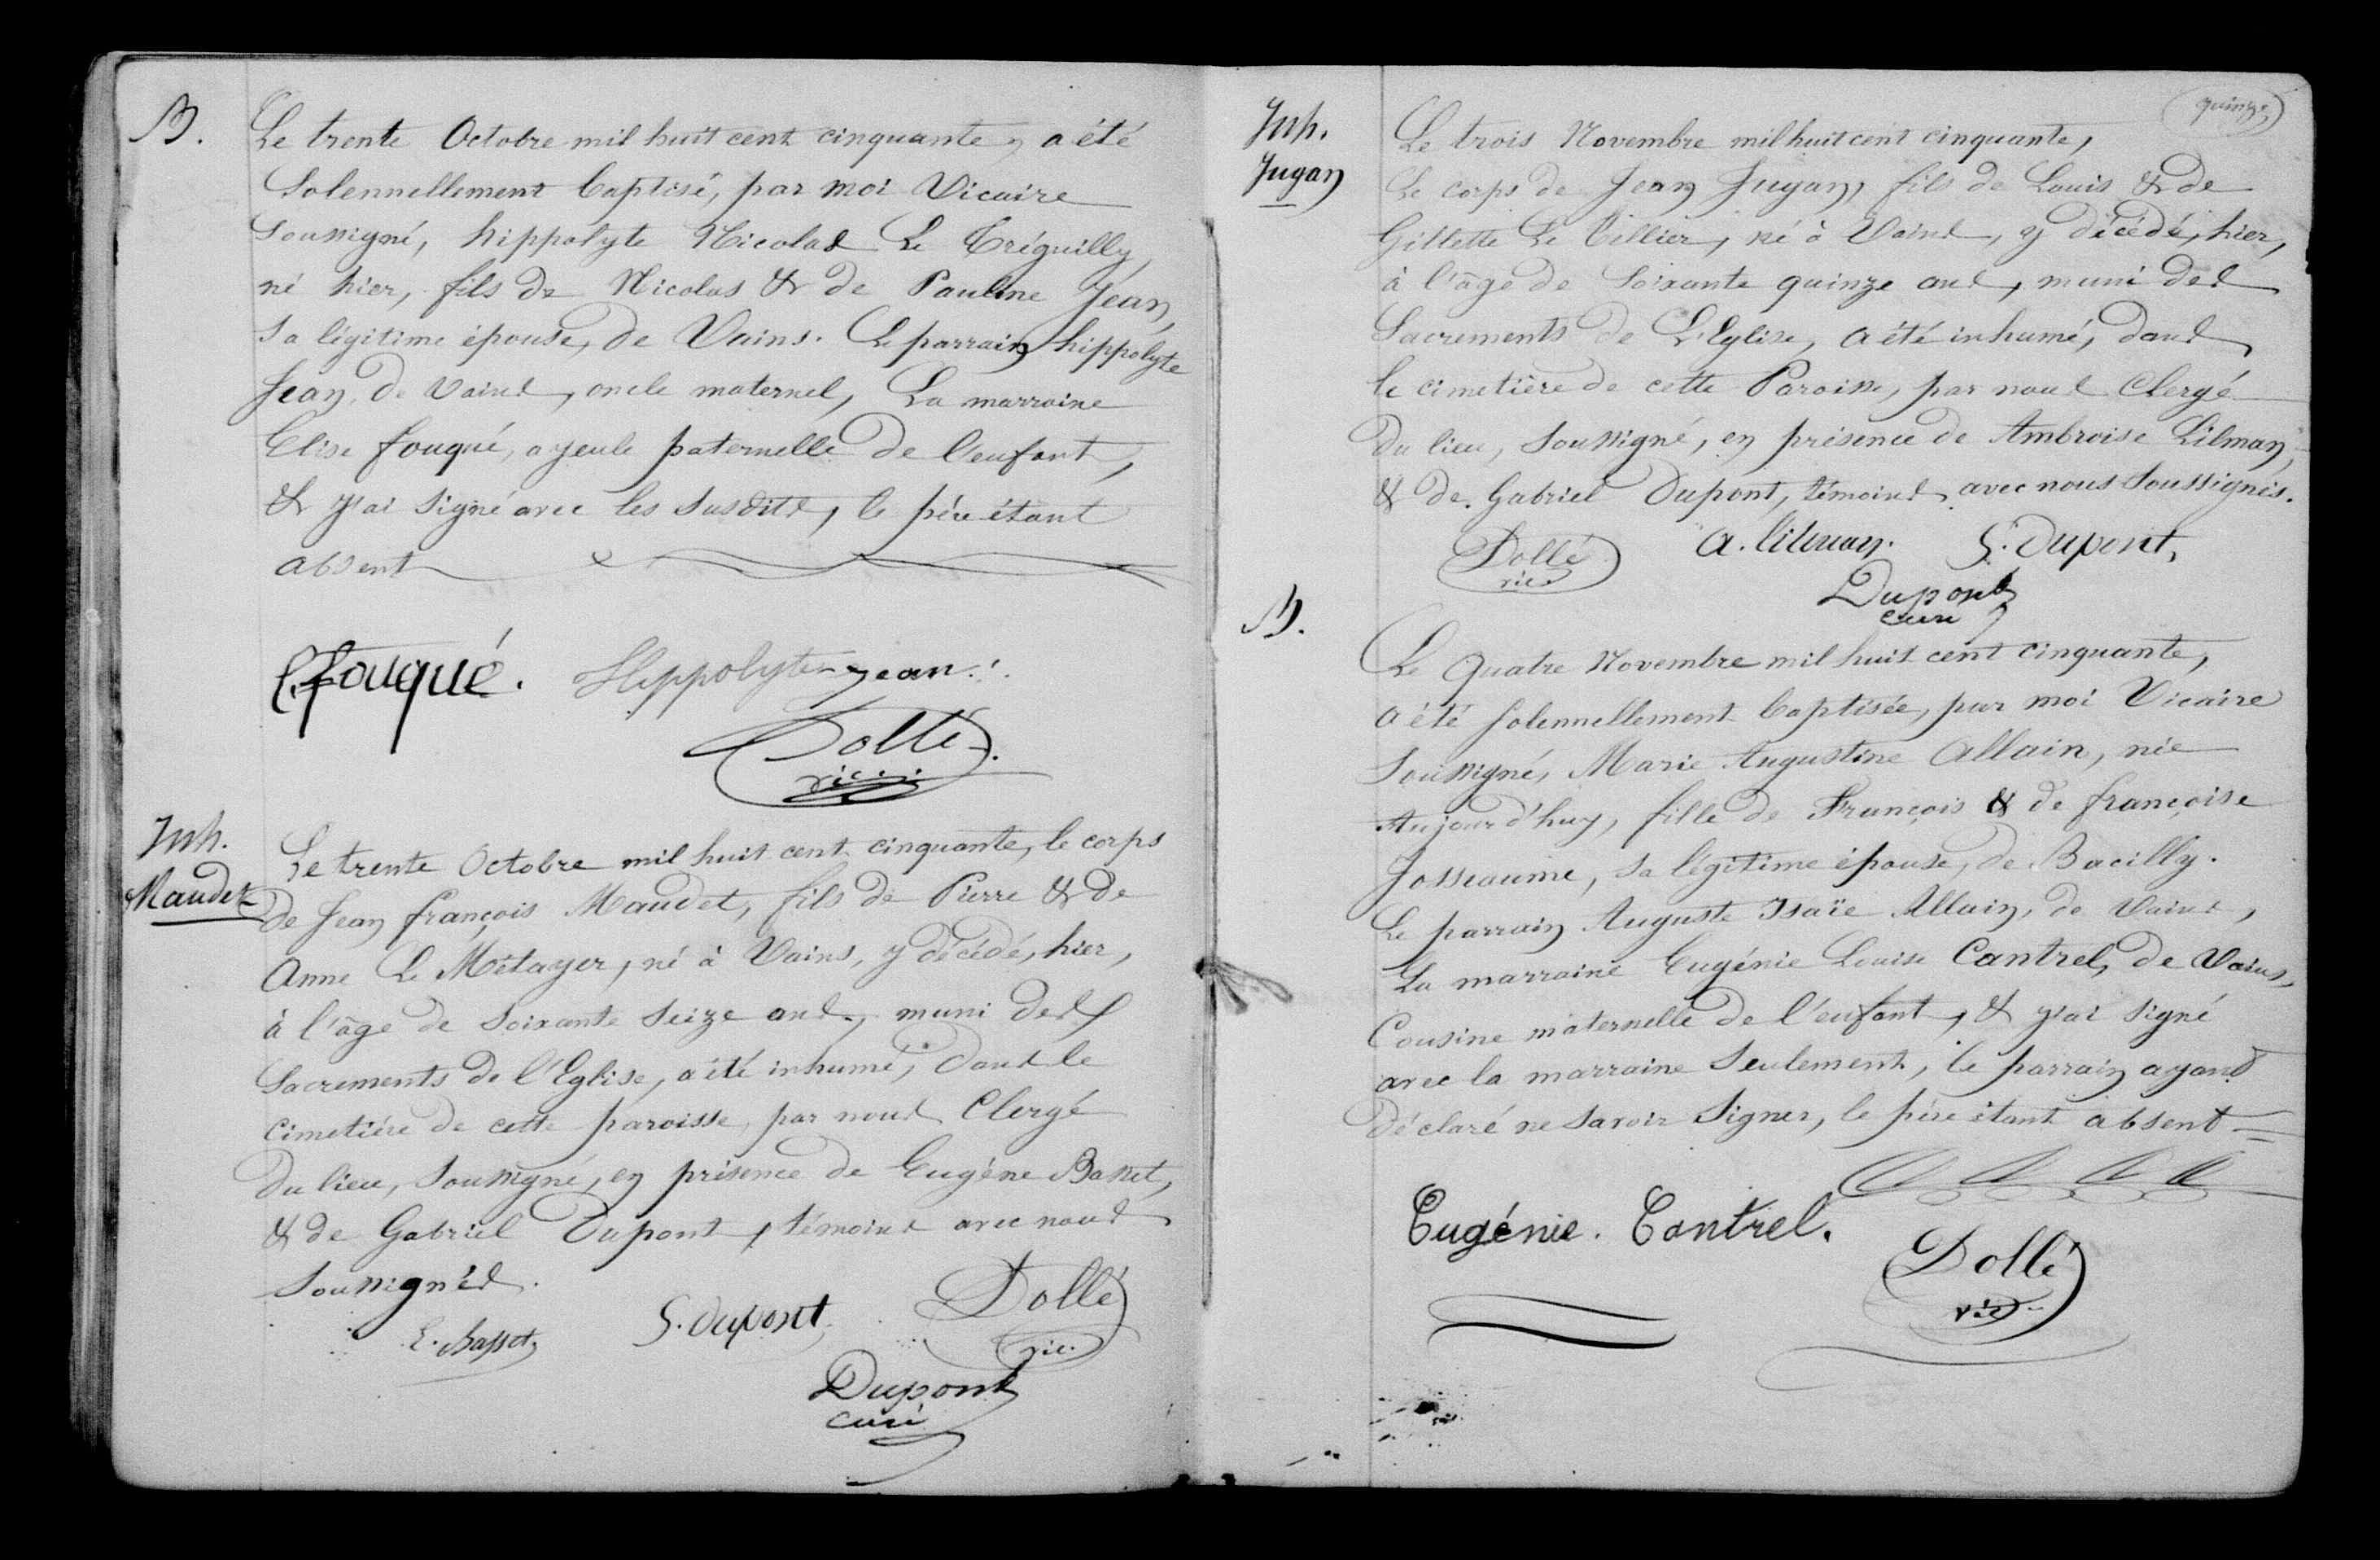 B.
Le trente Octobre mil huit cent cinquante, a été
Solennellement baptisé, par moi Vicaire
Soussigné, hippolyte Nicolas Le Tréguilly,
né hier, fils de Nicolas & de Pauline Jean,
Sa légitime épouse, de Vains. Le parrain hippolyte
Jean, de Vains, oncle maternel, La marraine
Elise fouqué, ayeule paternelle de l'enfant,
& j'ai signé avec les susdits, le père étant
absent
E. fouqué. Hippolyte jean.
Dollé
vic.
Inh.
Maudet
Le trente Octobre mil huit cent cinquante, le corps
de Jean françois Maudet, fils de Pierre & de
Anne Le Métayer, né à Vains, y décédé, hier,
à l'âge de Soixante Seize ans, muni des
Sacrements de l'Eglise, a été inhumé, dans le
Cimetière de cette paroisse, par nous Clergé
du lieu, Soussigné, en présence de Eugène Basset,
& de Gabriel Dupont, témoins avec nous
Soussignés.
E. Basset
G. dupont
Dollé
vic.
Dupont
curé
quinze
Inh.
Jugan
Le trois Novembre mil huit cent cinquante,
Le corps de Jean Jugan, fils de Louis & de
Gillette Le Tellier, né à Vains, y décédé, hier,
à l'âge de Soixante quinze ans, muni des
Sacrements de L'Eglise, a été inhumé, dans
le cimetière de cette Paroisse, par nous Clergé
du lieu, Soussigné, en présence de Ambroise Lilman,
& de Gabriel Dupont, témoins avec nous Soussignés.
Dollé
vic.
A. lilman. G. Dupont,
Dupont
curé
B.
Le Quatre Novembre mil huit cent cinquante,
a été Solennellement baptisée, par moi Vicaire
Soussigné, Marie Augustine Allain, née
Aujourd'huy, fille de François & de françoise
Josseaume, Sa légitime épouse, de Bacilly.
Le parrain Auguste Isaïe Allain, de Vains,
La marraine Eugénie Louise Cantrel, de Vains,
Cousine maternelle de l'enfant, & j'ai signé
avec la marraine Seulement, le parrain ayant
déclaré ne Savoir Signer, le père étant absent
Eugénie. Cantrel.
Dollé
vic